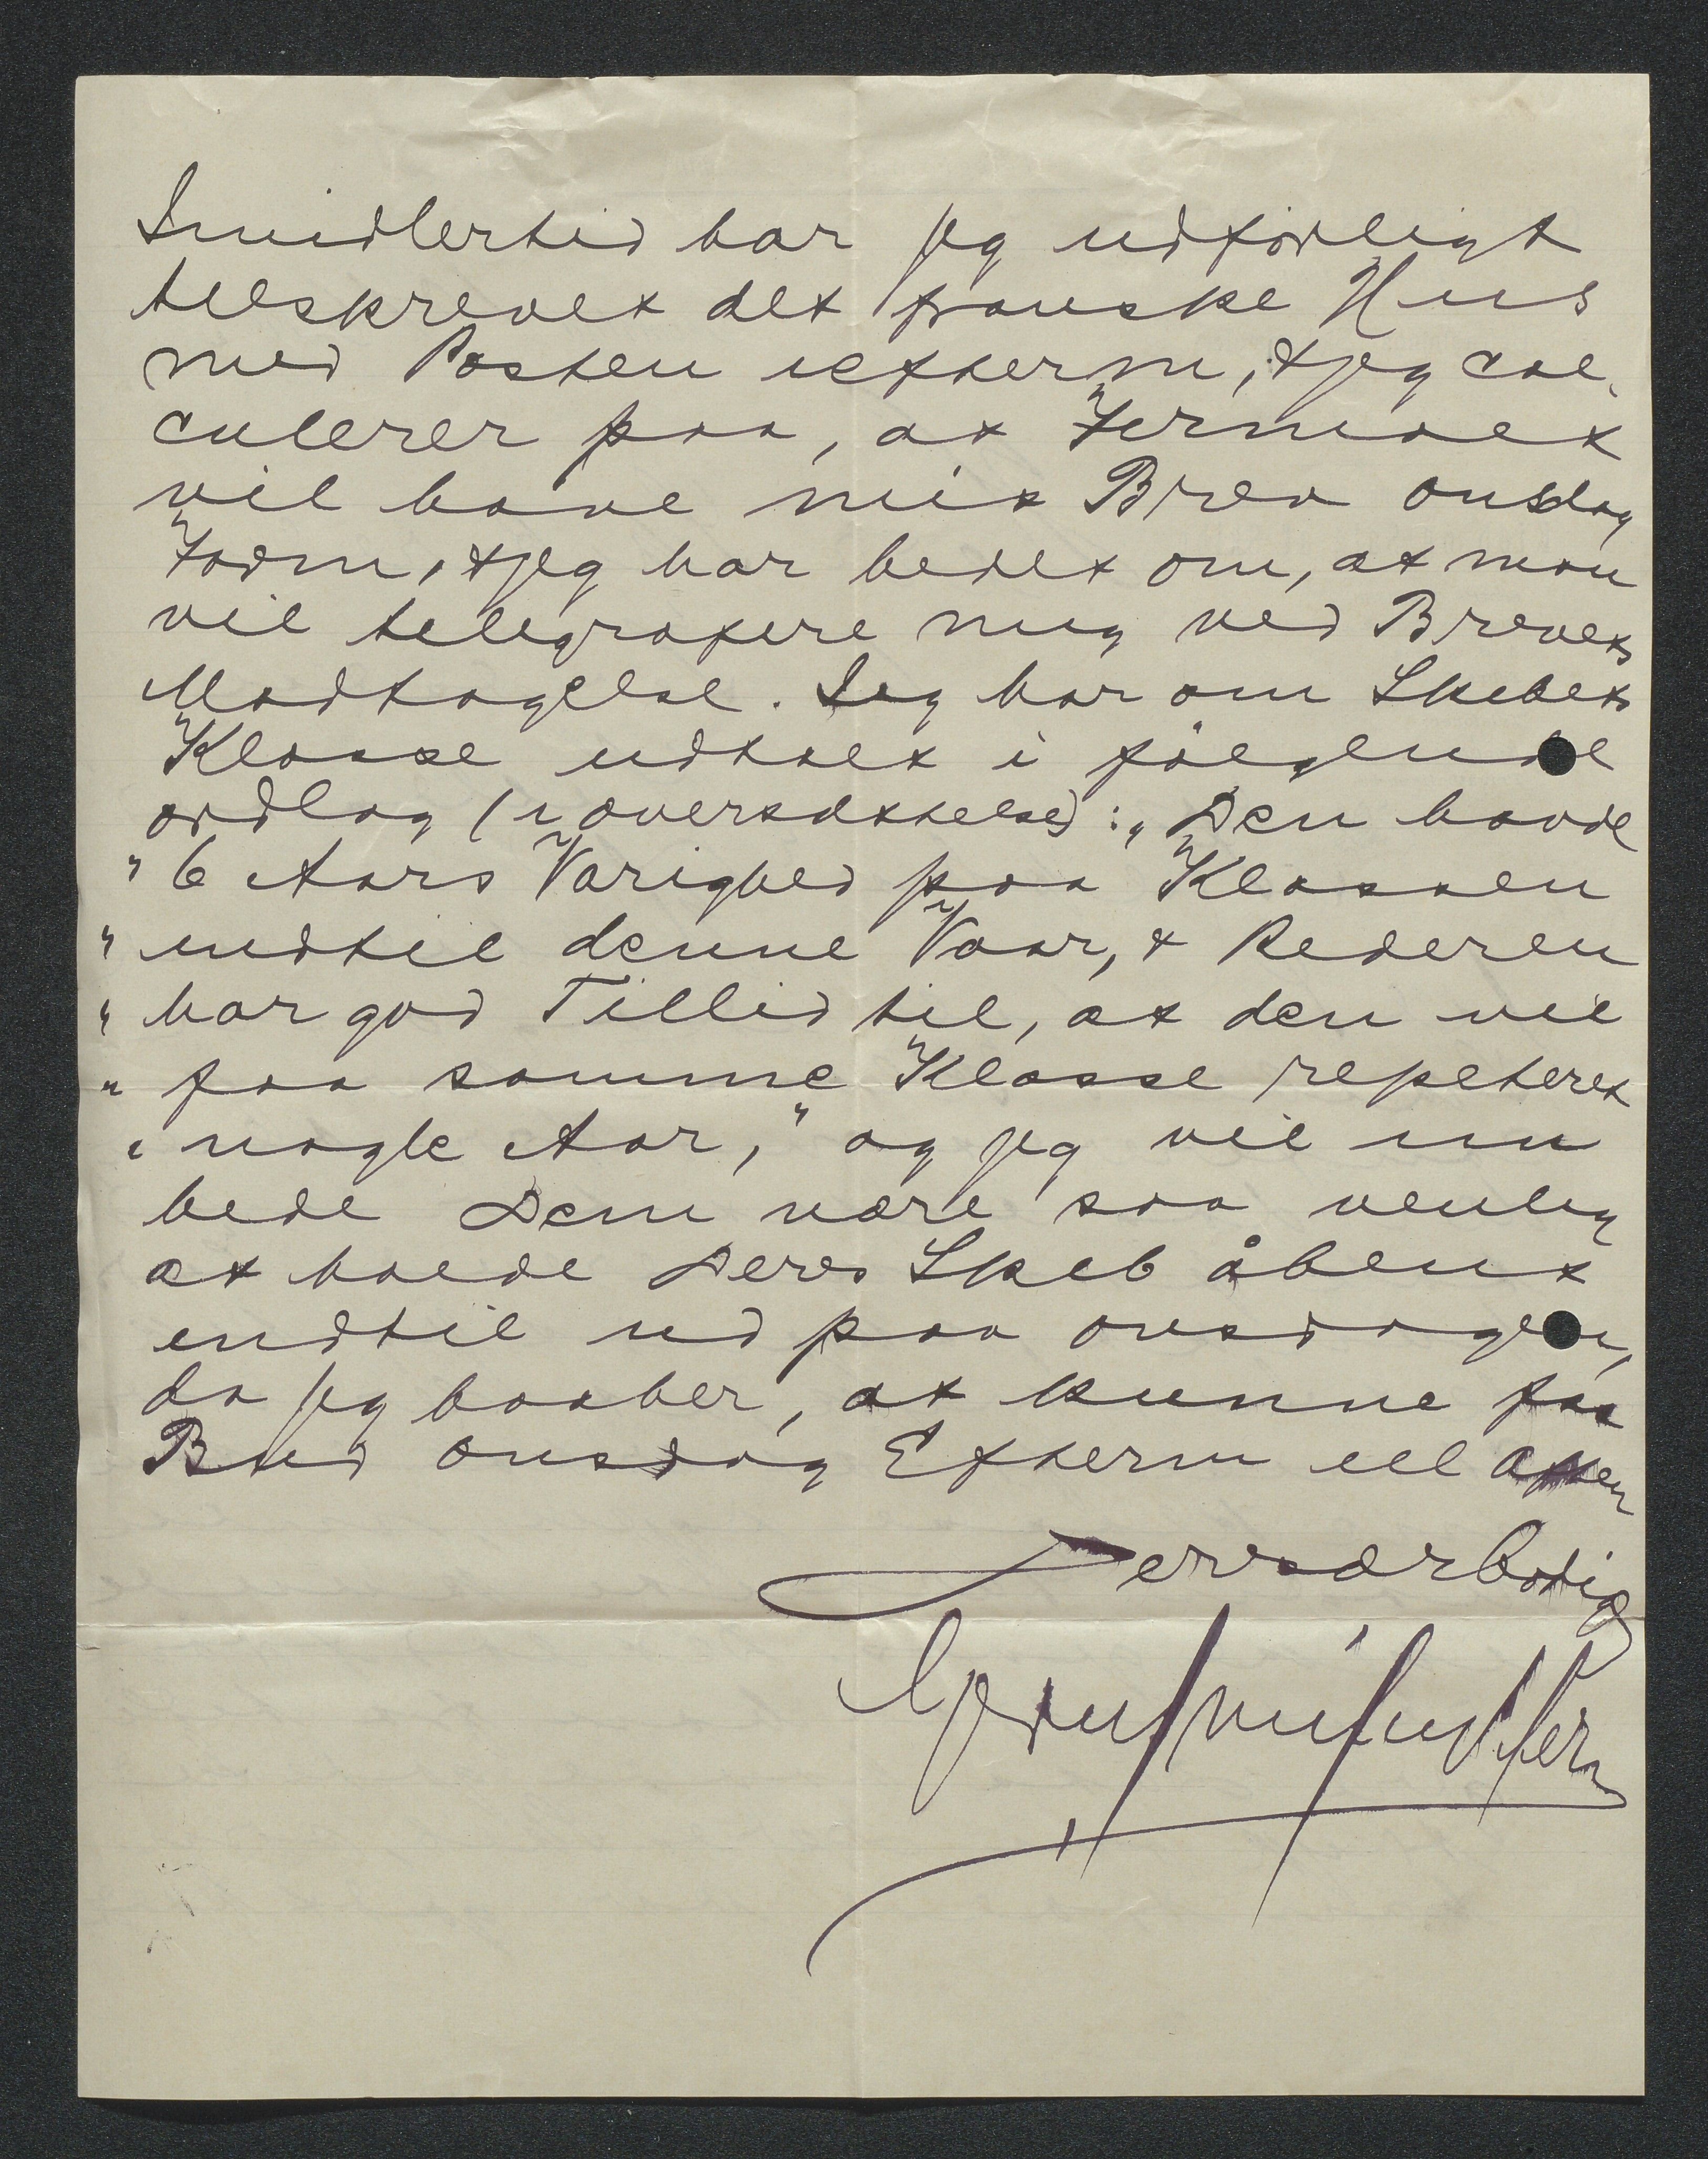 Imidlertid har jeg udførligt
tilskrevet det franske Hus
med Posten iefterm, & jeg cal-
culerer paa, at Firmaet
vil have mit Brev onsdag
Form, & jeg har bedet om, at man
vil telegrafere mig ved Brevets
Modtagelse. Jeg har om Skibets
Klasse udtalt i følgende
ordlag (i oversættelse): „Den havde
" 6 Aars Varighed paa Klassen
" indtil denne Vaar, & Rederen
" har god Tillid til, at den vil
" faa samme Klasse repeteret
" nogle Aar," og jeg vil nu
bede Dem være saa venlig
at holde Deres Skib åbent
indtil ud paa onsdagen,
da jeg haaber, at kunne faa
Bud onsdag Efterm ell Aften
Deres ærbødig